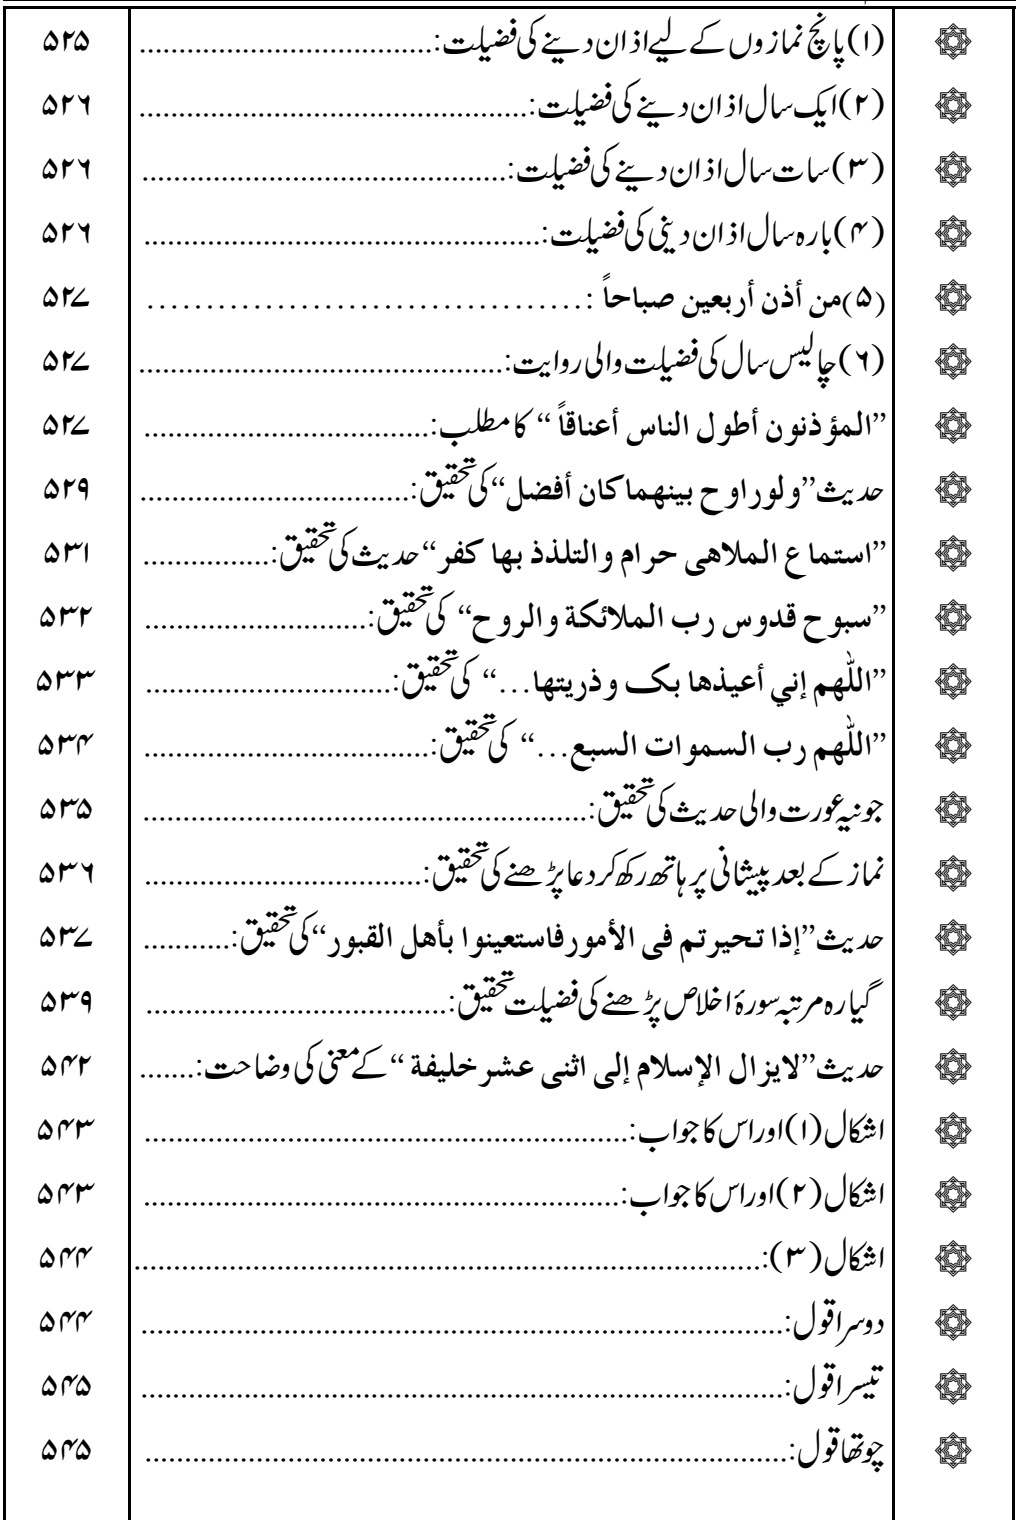 (۱) پانچ نمازوں کے لیے اذان دینے کی فضیلت:........................................ ۵۲۵
(۲) ایک سال اذان دینے کی فضیلت:........................................ ۵۲۶
(۳) سات سال اذان دینے کی فضیلت:........................................ ۵۲۶
(۴) بارہ سال اذان دینی کی فضیلت:........................................ ۵۲۶
(۵) من أذن أربعين صباحاً :........................................ ۵۲۷
(۶) چالیس سال کی فضیلت والی روایت:........................................ ۵۲۷
”المؤذنون أطول الناس أعناقاً“ کا مطلب:........................................ ۵۲۷
حدیث”ولوراوح بينهما كان أفضل“کی تحقیق:........................................ ۵۲۹
”استماع الملاهى حرام والتلذذ بها كفر“حدیث کی تحقیق:................ ۵۳۱
”سبوح قدوس رب الملائكة والروح“ کی تحقیق:............................ ۵۳۲
”اللّٰهم إني أعيذها بک وذريتها...“ کی تحقیق:............................... ۵۳۳
”اللّٰهم رب السموات السبع...“ کی تحقیق:.................................... ۵۳۴
جونیہ عورت والی حدیث کی تحقیق:........................................ ۵۳۵
نماز کے بعد پیشانی پر ہاتھ رکھ کر دعا پڑھنے کی تحقیق:................................... ۵۳۶
حدیث”إذا تحيرتم فى الأمور فاستعينوا بأهل القبور“کی تحقیق:........... ۵۳۷
گیارہ مرتبہ سورۂ اخلاص پڑھنے کی فضیلت تحقیق:...................................... ۵۳۹
حدیث”لايزال الإسلام إلى اثنى عشر خليفة“ کے معنی کی وضاحت:....... ۵۴۲
اشکال (۱) اور اس کا جواب:........................................ ۵۴۳
اشکال (۲) اور اس کا جواب:........................................ ۵۴۳
اشکال (۳):........................................ ۵۴۴
دوسرا قول:........................................ ۵۴۴
تیسرا قول:........................................ ۵۴۵
چوتھا قول:........................................ ۵۴۵